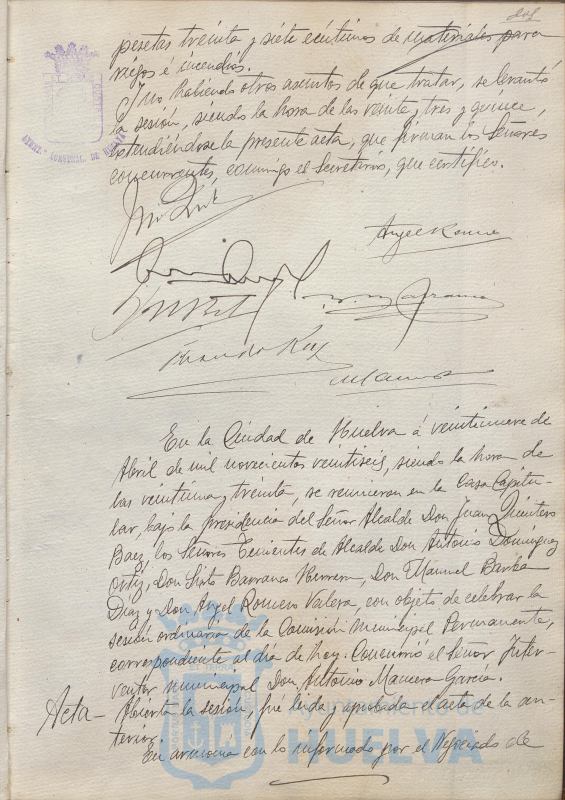 pesetas treinta y siete céntimos de materiales para
riegos é incendios.
Y no, habiendo otros asuntos de que tratar, se levantó
la sesión, siendo la hora de las veinte, tres y quince,
extendiéndose la presente acta, que firman los Señores
concurrentes, conmigo el Secretario, que certifico.
Angel Romero
En la Ciudad de Huelva á veintinueve de
Abril de mil novecientos veintiseis, siendo la hora de
las veintiuna, treinta, se reunieron en la Casa Capitu-
lar, bajo la presidencia del Señor Alcalde Don Juan Quintero
Baez, los Señores Tenientes de Alcalde Don Antonio Dominguez
Ortiz, Don Sixto Barranco Herrera, Don Manuel Barba
Díaz y Don Angel Romero Valera, con objeto de celebrar la
sesión ordinaria de la Comisión Municipal Permanente,
correspondiente al día de hoy. Concurrió el Señor Inter-
ventor municipal Don Antonio García.
Acta - Abierta la sesión, fué leida y aprobada el acta de la an-
terior.
En armonia con lo informado por el Negociado de
Ayuntamiento de
HUELVA